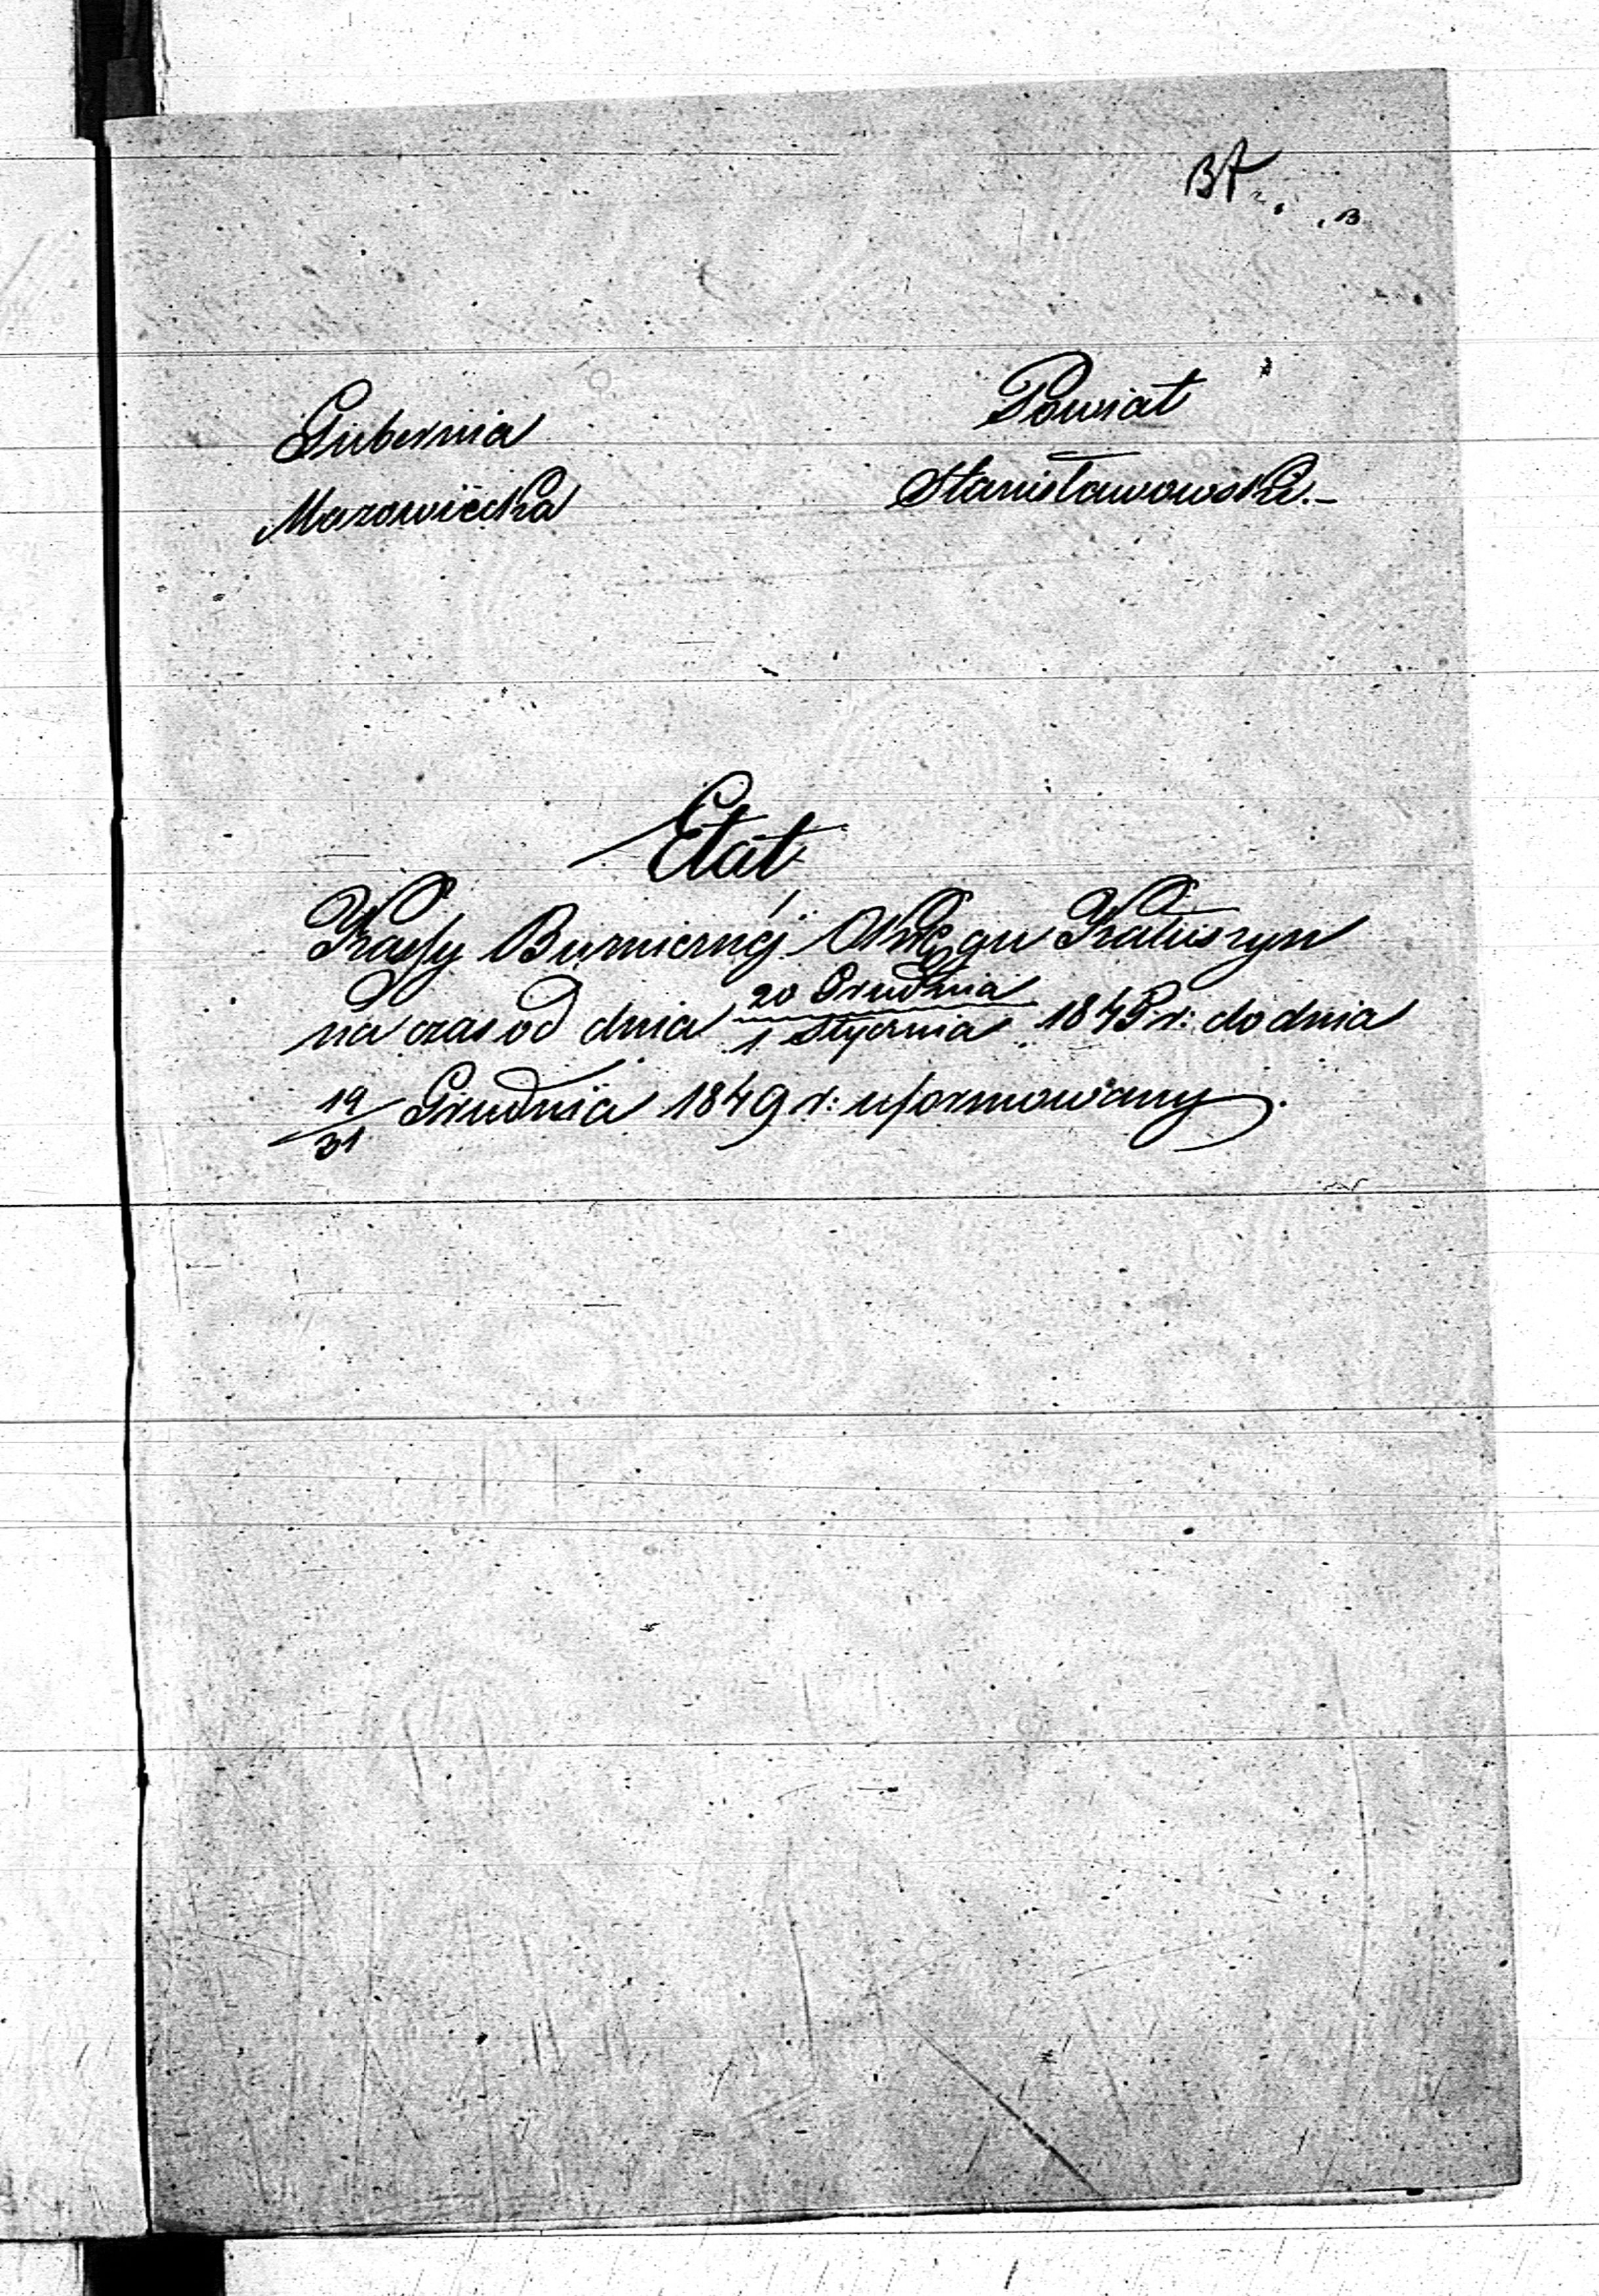 Gubernia
Mazowiecka
Powiat
Stanisławowski.-
Etat
Kassy Bużnicznéj Okręgu Kałuszyn
na czas od dnia 20 Grudnia / 1 Stycznia 1845 r: do dnia
19/31 Grudnia 1849 r: uformowany.